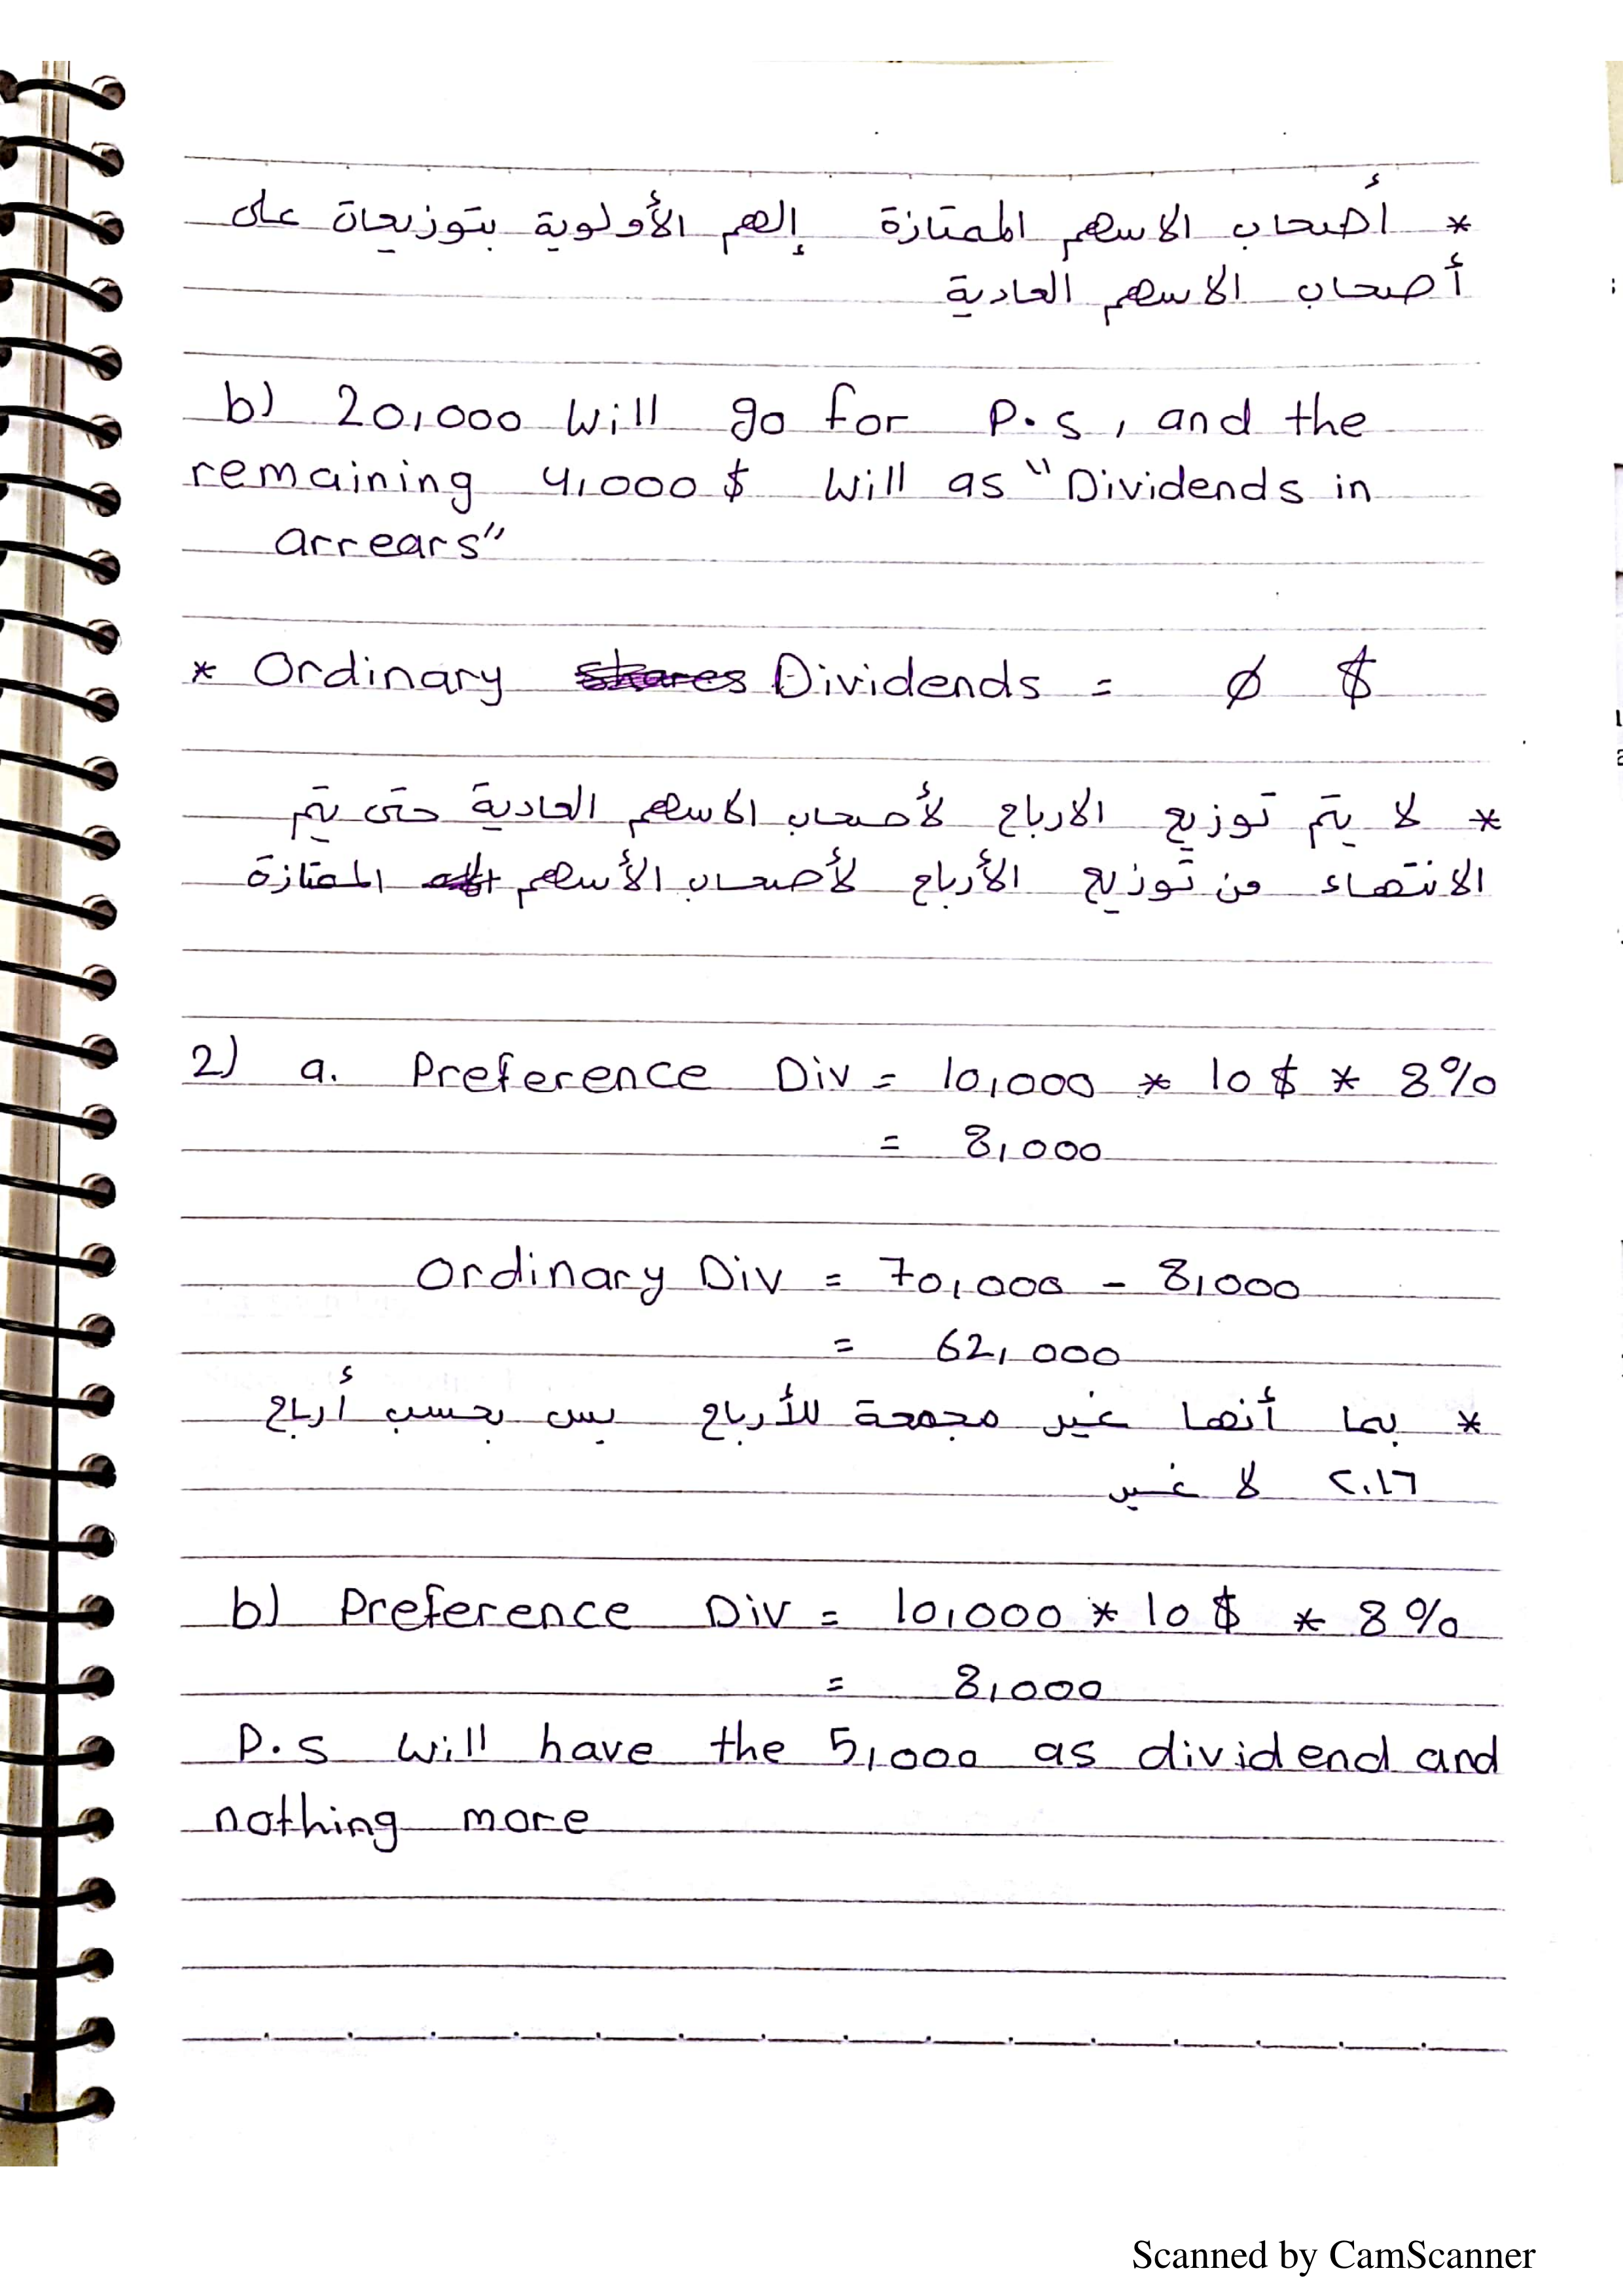 * أصحاب الاسهم الممتازة إلهم الأولوية بتوزيعات على
أصحاب الاسهم العادية
b) 20,000 will go for P.s, and the
remaining 4,000 $ will as "Dividends in
arrears"
* Ordinary shares Dividends = ∅ $
* لا يتم توزيع الارباح لأصحاب الاسهم العادية حتى يتم
الانتهاء من توزيع الأرباح لأصحاب الأسهم الممتازة
2) a. Preference Div = 10,000 * 10 $ * 8%
= 8,000
Ordinary Div = 70,000 - 8,000
= 62,000
* بما أنها غير مجمعة للأرباح بس بحسب أرباح
٢٠١٦ لا غير
b) Preference Div = 10,000 * 10 $ * 8%
= 8,000
P.s will have the 5,000 as dividend and
nothing more
Scanned by CamScanner